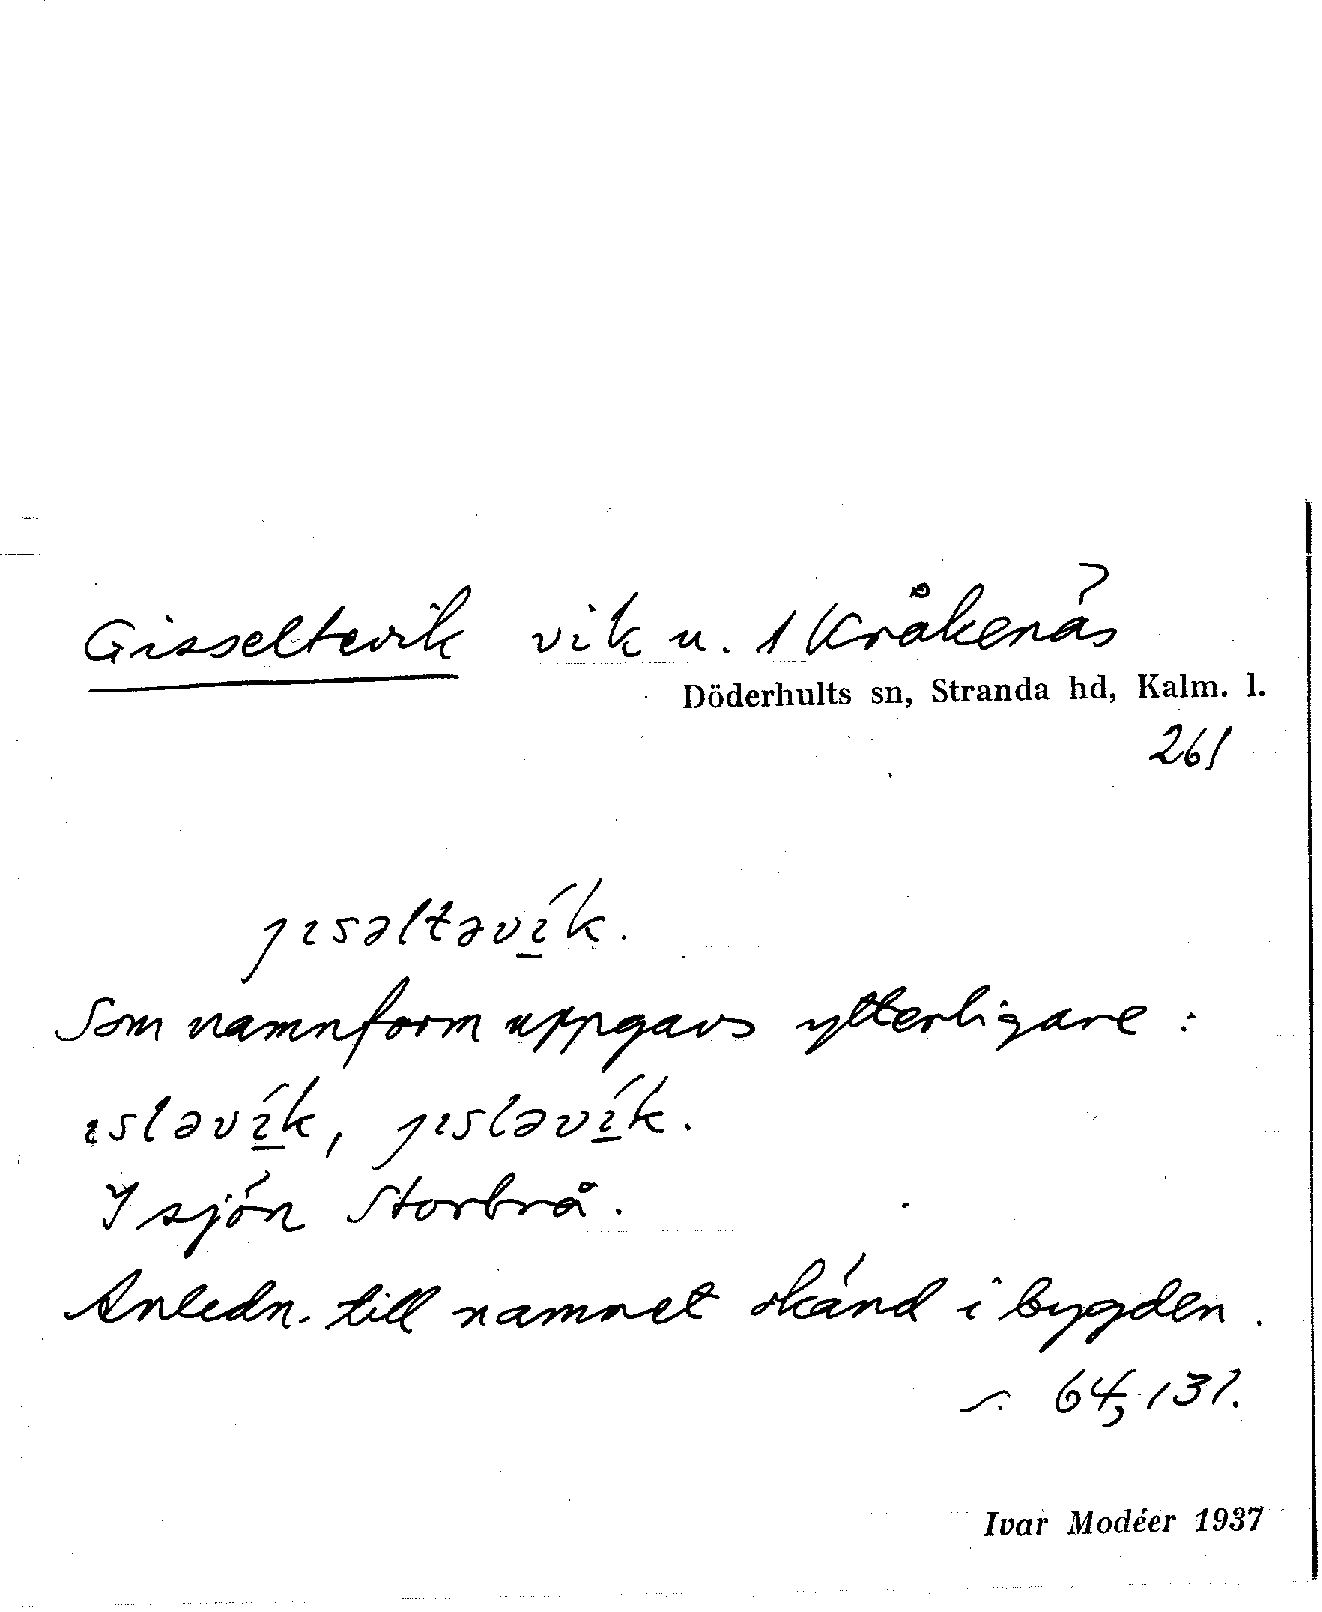 Gisseltevik vik u. 1 Kråkenäs
Döderhults sn, Stranda hd, Kalm. l.
261
ȷısəltəvı́k.
Som namnform uppgavs ytterligare :
ısləvı́k, ȷısləvı́k.
I sjön Storbrå.
Anledn. till namnet okänd i bygden.
s. 64, 137.
Ivar Modéer 1937